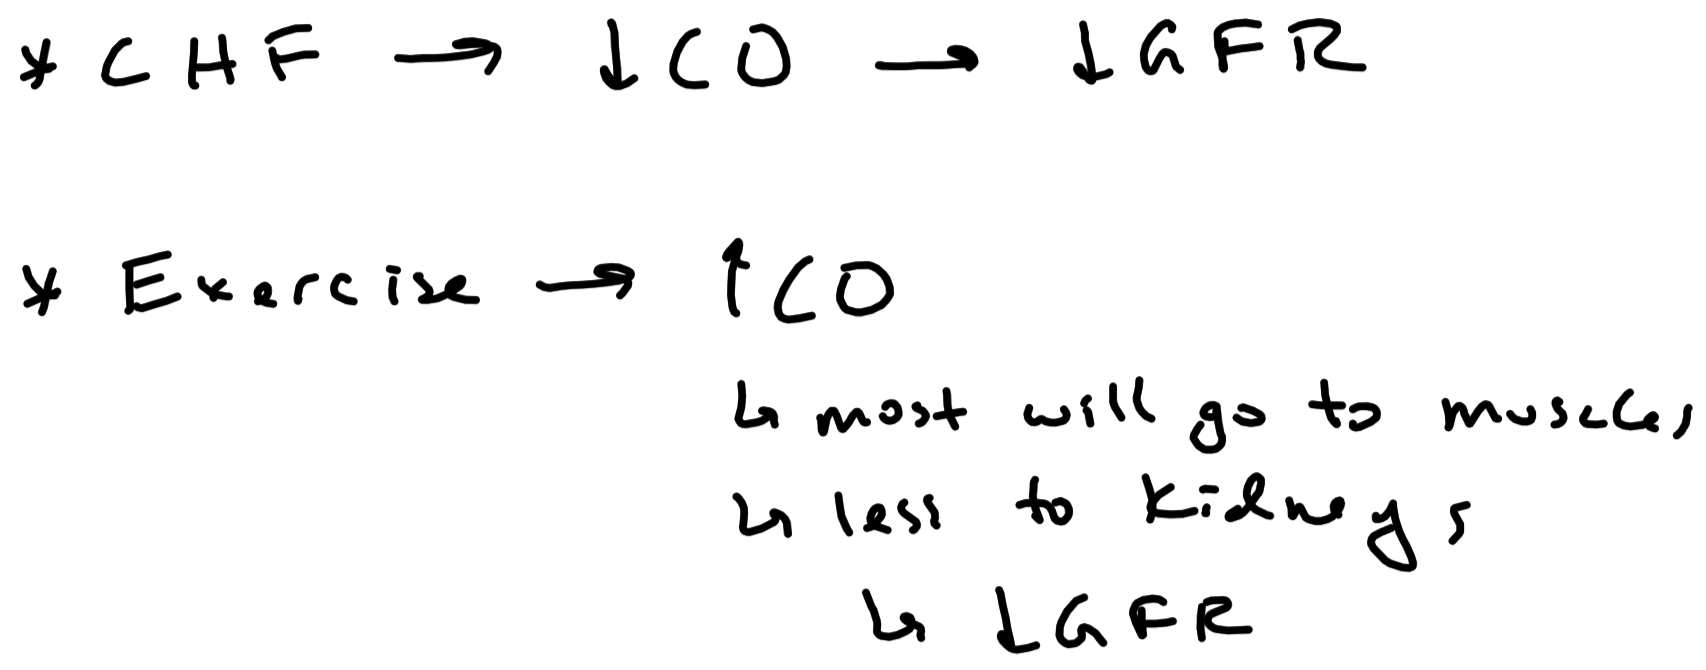 * CHF → ↓CO → ↓GFR
* Exercise → ↑CO
↳ most will go to muscles
↳ less to kidneys
↳ ↓GFR